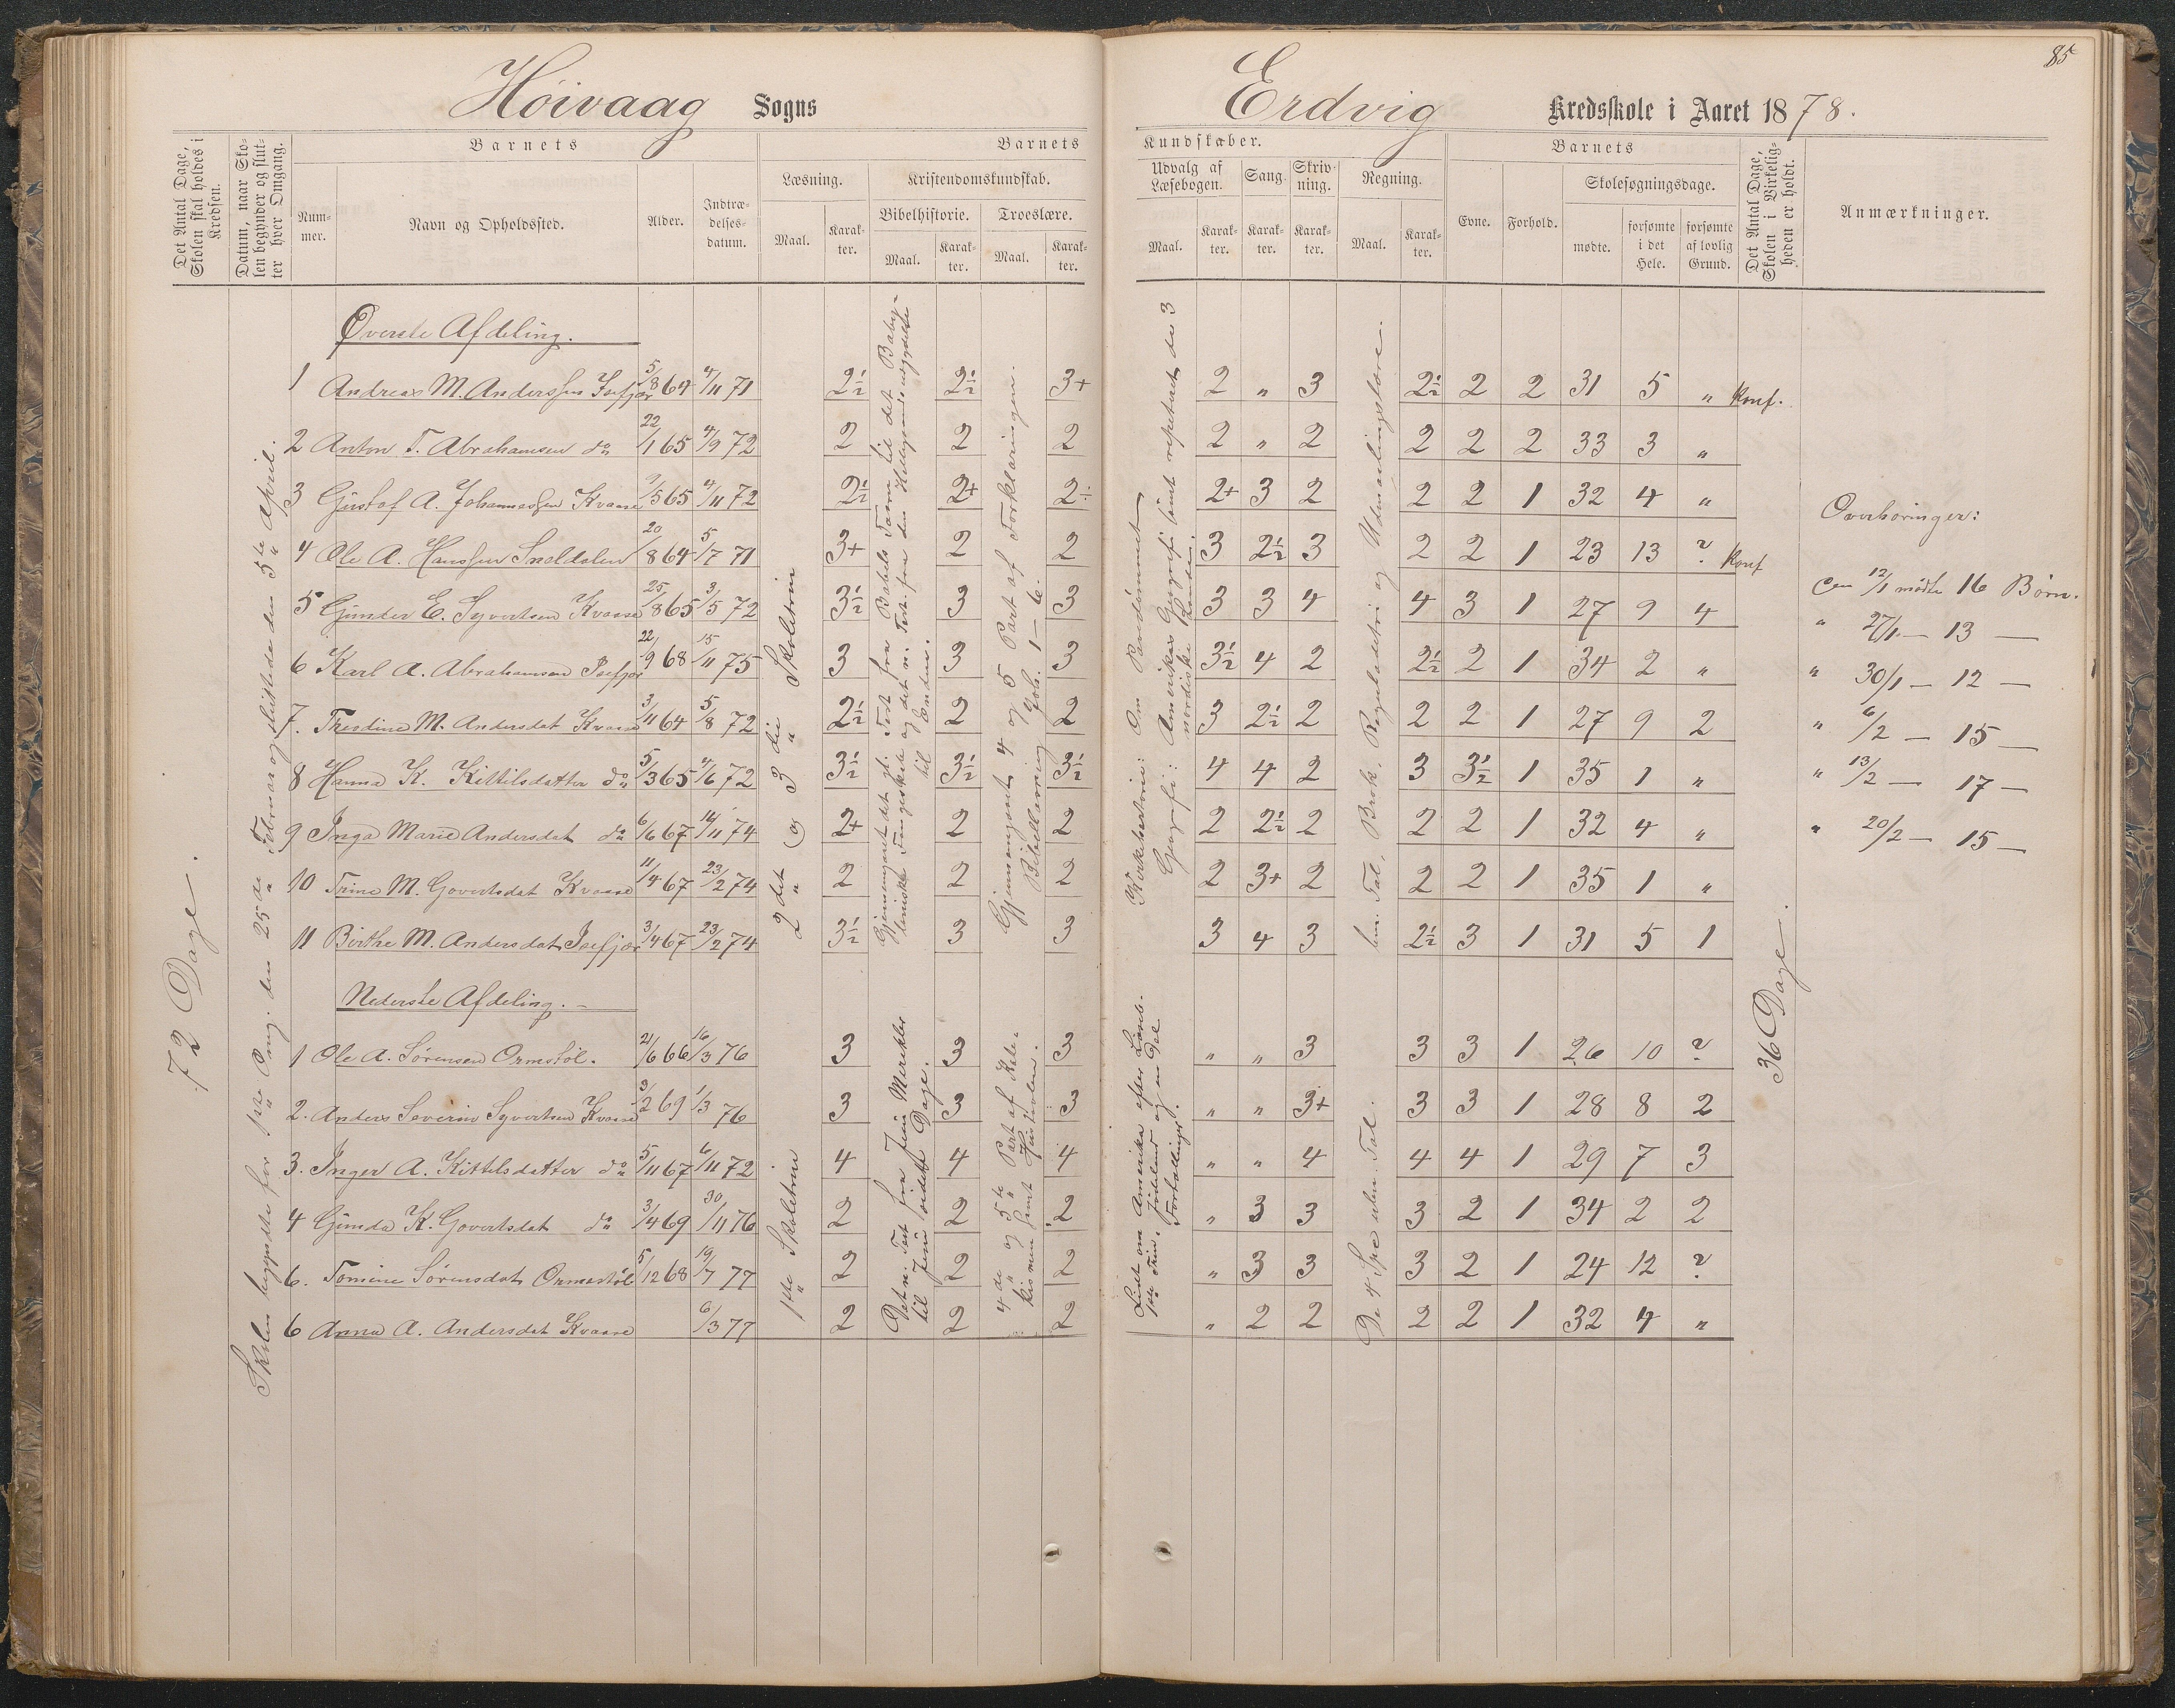 85
Höivaag Sogns
Erdvig Kredsskole i Aaret 1878.
Det Antal Dage, Skolen skal holdes i Kredsen.
Datum, naar Skolen begynder og slutter hver Omgang.
Barnets
Nummer.
Navn og Opholdssted.
Alder.
Indtrædelsesdatum.
Barnets Kundskaber.
Læsning.
Maal.
Karakter.
Kristendomskundskab.
Bibelhistorie.
Maal.
Karakter.
Troeslære.
Maal.
Karakter.
Udvalg af Læsebogen.
Maal.
Karakter.
Sang.
Karakter.
Skrivning.
Karakter.
Regning.
Maal.
Karakter.
Barnets
Evne.
Forhold.
Skolesøgningsdage.
mødte.
forsømte i det Hele.
forsømte af lovlig Grund.
Det Antal Dage, Skolen i Virkeligheden er holdt.
Anmærkninger.
72 Dage.
Skolen begyndte for 1ste Omg. den 25de Februar og sluttede den 5te April.
Øverste Afdeling.
1 Andreas M. Anderssen Isefjær 5/8 64 4/11 71 2½ 2½ 3+ 2 " 3 2½ 2 2 31 5 " Konf.
2 Anton T. Abrahamsen do 22/1 65 4/9 72 2 2 2 2 " 2 2 2 2 33 3 "
3 Gustof A. Johannessen Kvaase 9/5 65 4/11 72 2½ 2+ 2÷ 2+ 3 2 2 2 1 32 4 "
4 Ole A. Hanssen Sneldalen 20/8 64 5/7 71 3+ 2 2 3 2½ 3 2 2 1 23 13 ? Konf
5 Gunder E. Syvertsen Kvaase 25/8 65 3/5 72 3½ 3 3 3 3 4 4 3 1 27 9 4
6 Karl A. Abrahamsen Isefjær 22/9 68 15/11 75 3 3 3 3½ 4 2 2½ 2 1 34 2 "
7. Theodine M. Andersdat Kvaase 3/11 64 5/8 72 2½ 2 2 3 2½ 2 2 2 1 27 9 2
8 Hanna K. Kittilsdatter do 5/3 65 4/6 72 3½ 3½ 3½ 4 4 2 3 3½ 1 35 1 "
9 Inga Marie Andersdat do 6/6 67 16/11 74 2+ 2 2 2 2½ 2 2 2 1 32 4 "
10 Trine M. Govertsdat Kvaase 11/4 67 23/2 74 2 2 2 2 3+ 2 2 2 1 35 1 "
11 Birthe M. Andersdat Isefjær 3/4 67 23/2 74 3½ 3 3 3 4 3 2½ 3 1 31 5 1
2det og 3die Skoletrin
Gjennemgaaet det gl. Test fra Babels Taarn til det Babyloniske Fangeskab og det n. Test. fra den Helligaands udgydelse til Enden.
Gjennemgaaet 4 og 5 Part af Forklaringen.
Bibellæsning Joh. 1–6.
Kirkehistorie: Om Pavedømmet
Geografi: Amerikas Geografi samt repeteret de 3 nordiske Lande.
ben. Tal, Brøk, Reguladetri og Udmaalingslære.
36 Dage.
Nederste Afdeling. –
1 Ole A. Sörensen Ormstöl. 21/6 66 16/3 76 3 3 3 " " 3 3 3 1 26 10 ?
2. Anders Severin Syvertsen Kvaase 3/2 69 1/3 76 3 3 3 " " 3+ 3 3 1 28 8 2
3. Inger A. Kittelsdatter do 5/11 67 6/11 72 4 4 4 " " 4 4 4 1 29 7 3
4 Gunda K. Govertsdat do 3/4 69 30/11 76 2 2 2 " 3 3 3 2 1 34 2 2
6. Tomine Sörensdat Ormestöl 5/12 68 19/7 77 2 2 2 " 3 3 3 2 1 24 12 ?
6 Anna A. Andersdat Kvaase 6/3 77 2 2 2 " 2 2 2 2 1 32 4 "
1ste Skoletrin
Det n. Test fra Jesu Mirakler til Jesu sidste Dage.
4de og 5te Part af Katekismen samt Hustavlen.
Lidt om Amerika efter Læseb. 1ste Trin, Jödeland og en Del Fortællinger.
De 4 Spe uben. Tal.
Overhøringer:
Den 12/1 mødte 16 Børn.
" 27/1 – 13 –
" 30/1 – 12 –
" 6/2 – 15 –
" 13/2 – 17 –
" 20/2 – 15 –